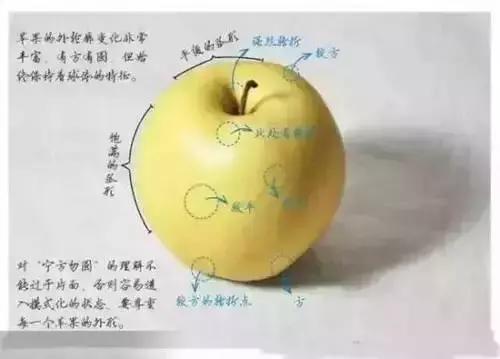 苹果的外轮廓变化非常
丰富、有方有圆、但始
终保持着球体的特征。
平缓的弧形
强烈转折
较方
饱满的弧形
此处有
较平
较方的转折点
方
对“宁方勿圆”的理解不
能过于片面、否则容易进
入模式化的状态、要尊重
每一个苹果的外形。